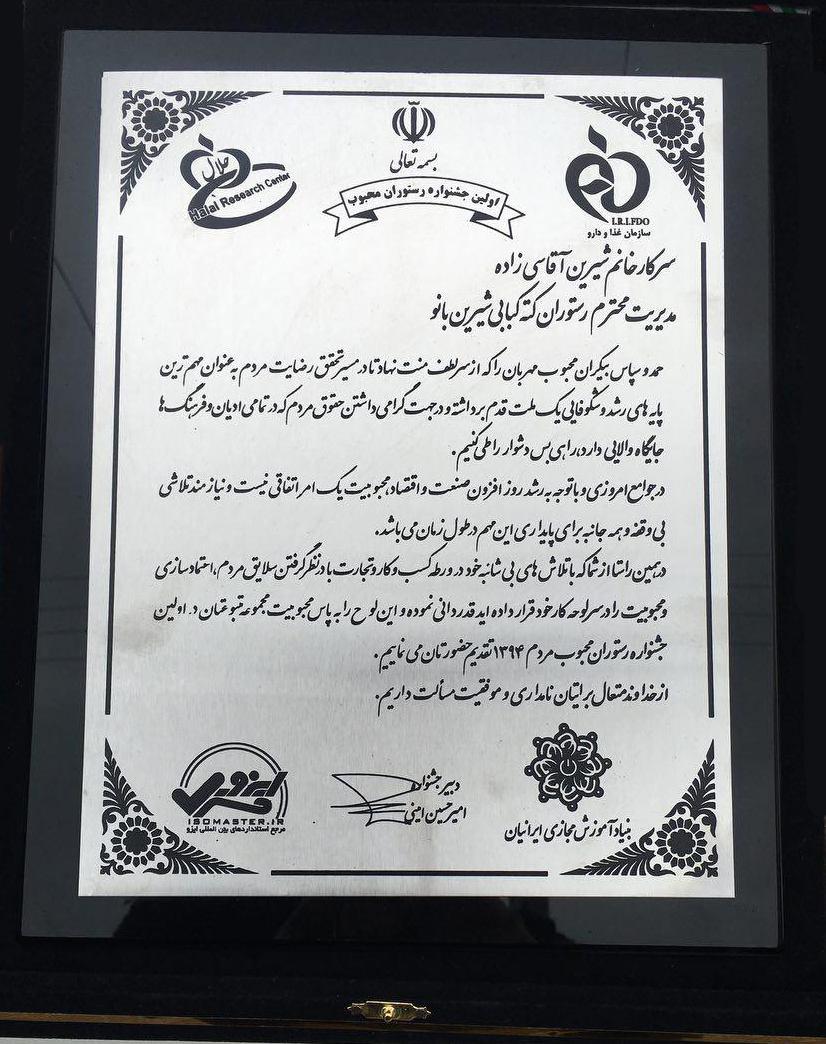 بسمه تعالی
اولین جشنواره رستوران محبوب
هلال
Halal Research Center
I.R.I.FDO
سازمان غذا و دارو
سرکار خانم شیرین آقاسی زاده
مدیریت محترم رستوران کته کبابی شیرین بانو
حمد و سپاس بیکران محبوب مهربان را که از سر لطف منت نهاد تا در مسیر تحقق رضایت مردم به عنوان مهم ترین
پایه های رشد و شکوفایی یک ملت قدم برداشته و در جهت گرامی داشتن حقوق مردم که در تمامی ادیان و فرهنگ ها
جایگاه والایی دارد، راهی بس دشوار را طی کنیم.
در جوامع امروزی و با توجه به رشد روز افزون صنعت و اقتصاد، محبوبیت یک امر اتفاقی نیست و نیازمند تلاشی
بی وقفه و همه جانبه برای پایداری این مهم در طول زمان می باشد.
در همین راستا از شما که با تلاش های بی شائبه خود در ورطه کسب و کار و تجارت با در نظر گرفتن سلایق مردم، اعتمادسازی
و محبوبیت را در سرلوحه کار خود قرار داده اید قدردانی نموده و این لوح را به پاس محبوبیت مجموعه متبوعتان در اولین
جشنواره رستوران محبوب مردم ۱۳۹۴ تقدیم حضورتان می نماییم.
از خداوند متعال برایتان نامداری و موفقیت مسألت داریم.
دبیر جشنواره
امیرحسین امینی
بنیاد آموزش مجازی ایرانیان
ایزو
ISOMASTER.IR
مرجع استانداردهای بین المللی ایزو